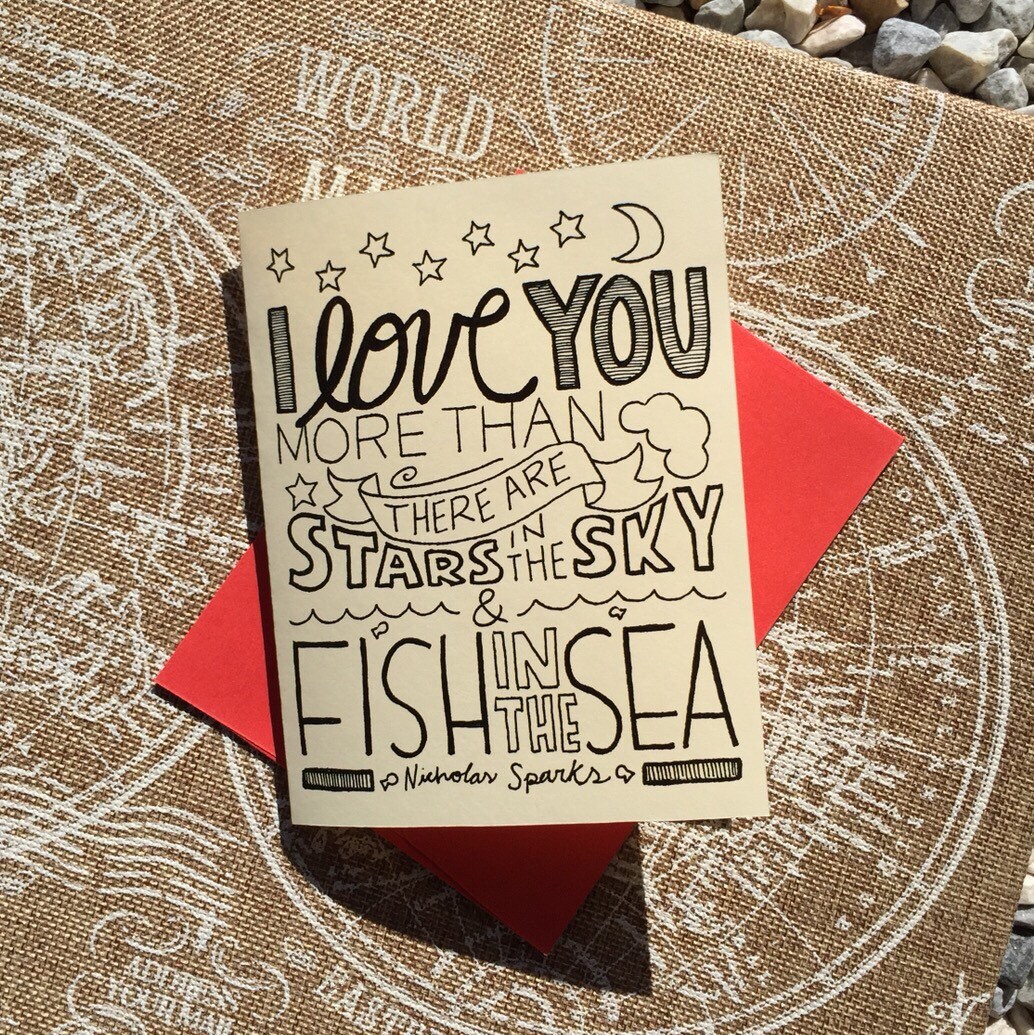 WORLD
I love YOU
MORE THAN
THERE ARE
STARS IN THE SKY
&
FISH IN THE SEA
Nicholas Sparks